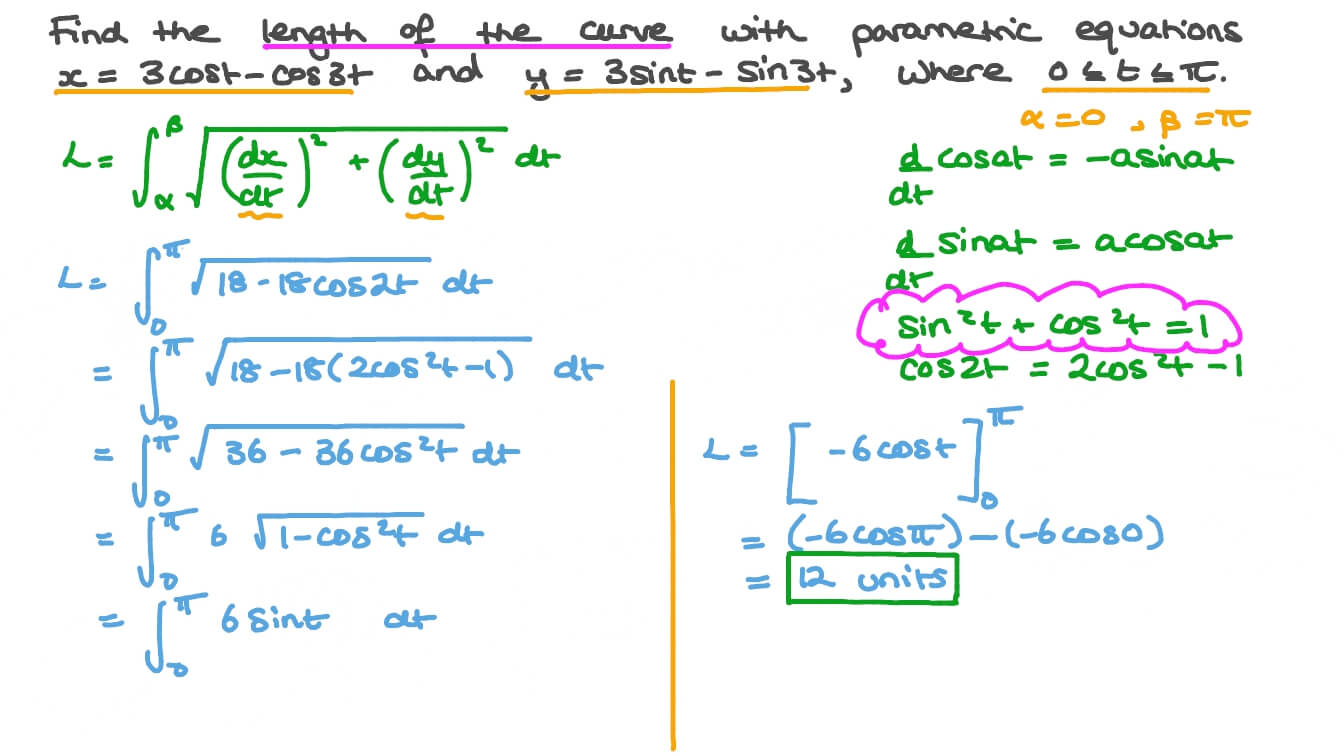 Find the length of the curve with parametric equations
x = 3cost - cos3t and y = 3sint - sin3t, where 0 ≤ t ≤ π.
α = 0 , β = π
L = ∫_α^β √((dx/dt)² + (dy/dt)²) dt
d/dt cosat = -asinat
d/dt sinat = acosat
sin²t + cos²t = 1
cos2t = 2cos²t - 1
L = ∫_0^π √(18 - 18cos2t) dt
= ∫_0^π √(18 - 18(2cos²t - 1)) dt
= ∫_0^π √(36 - 36cos²t) dt
= ∫_0^π 6 √(1 - cos²t) dt
= ∫_0^π 6 sint dt
L = [-6cost]_0^π
= (-6cosπ) - (-6cos0)
= 12 units